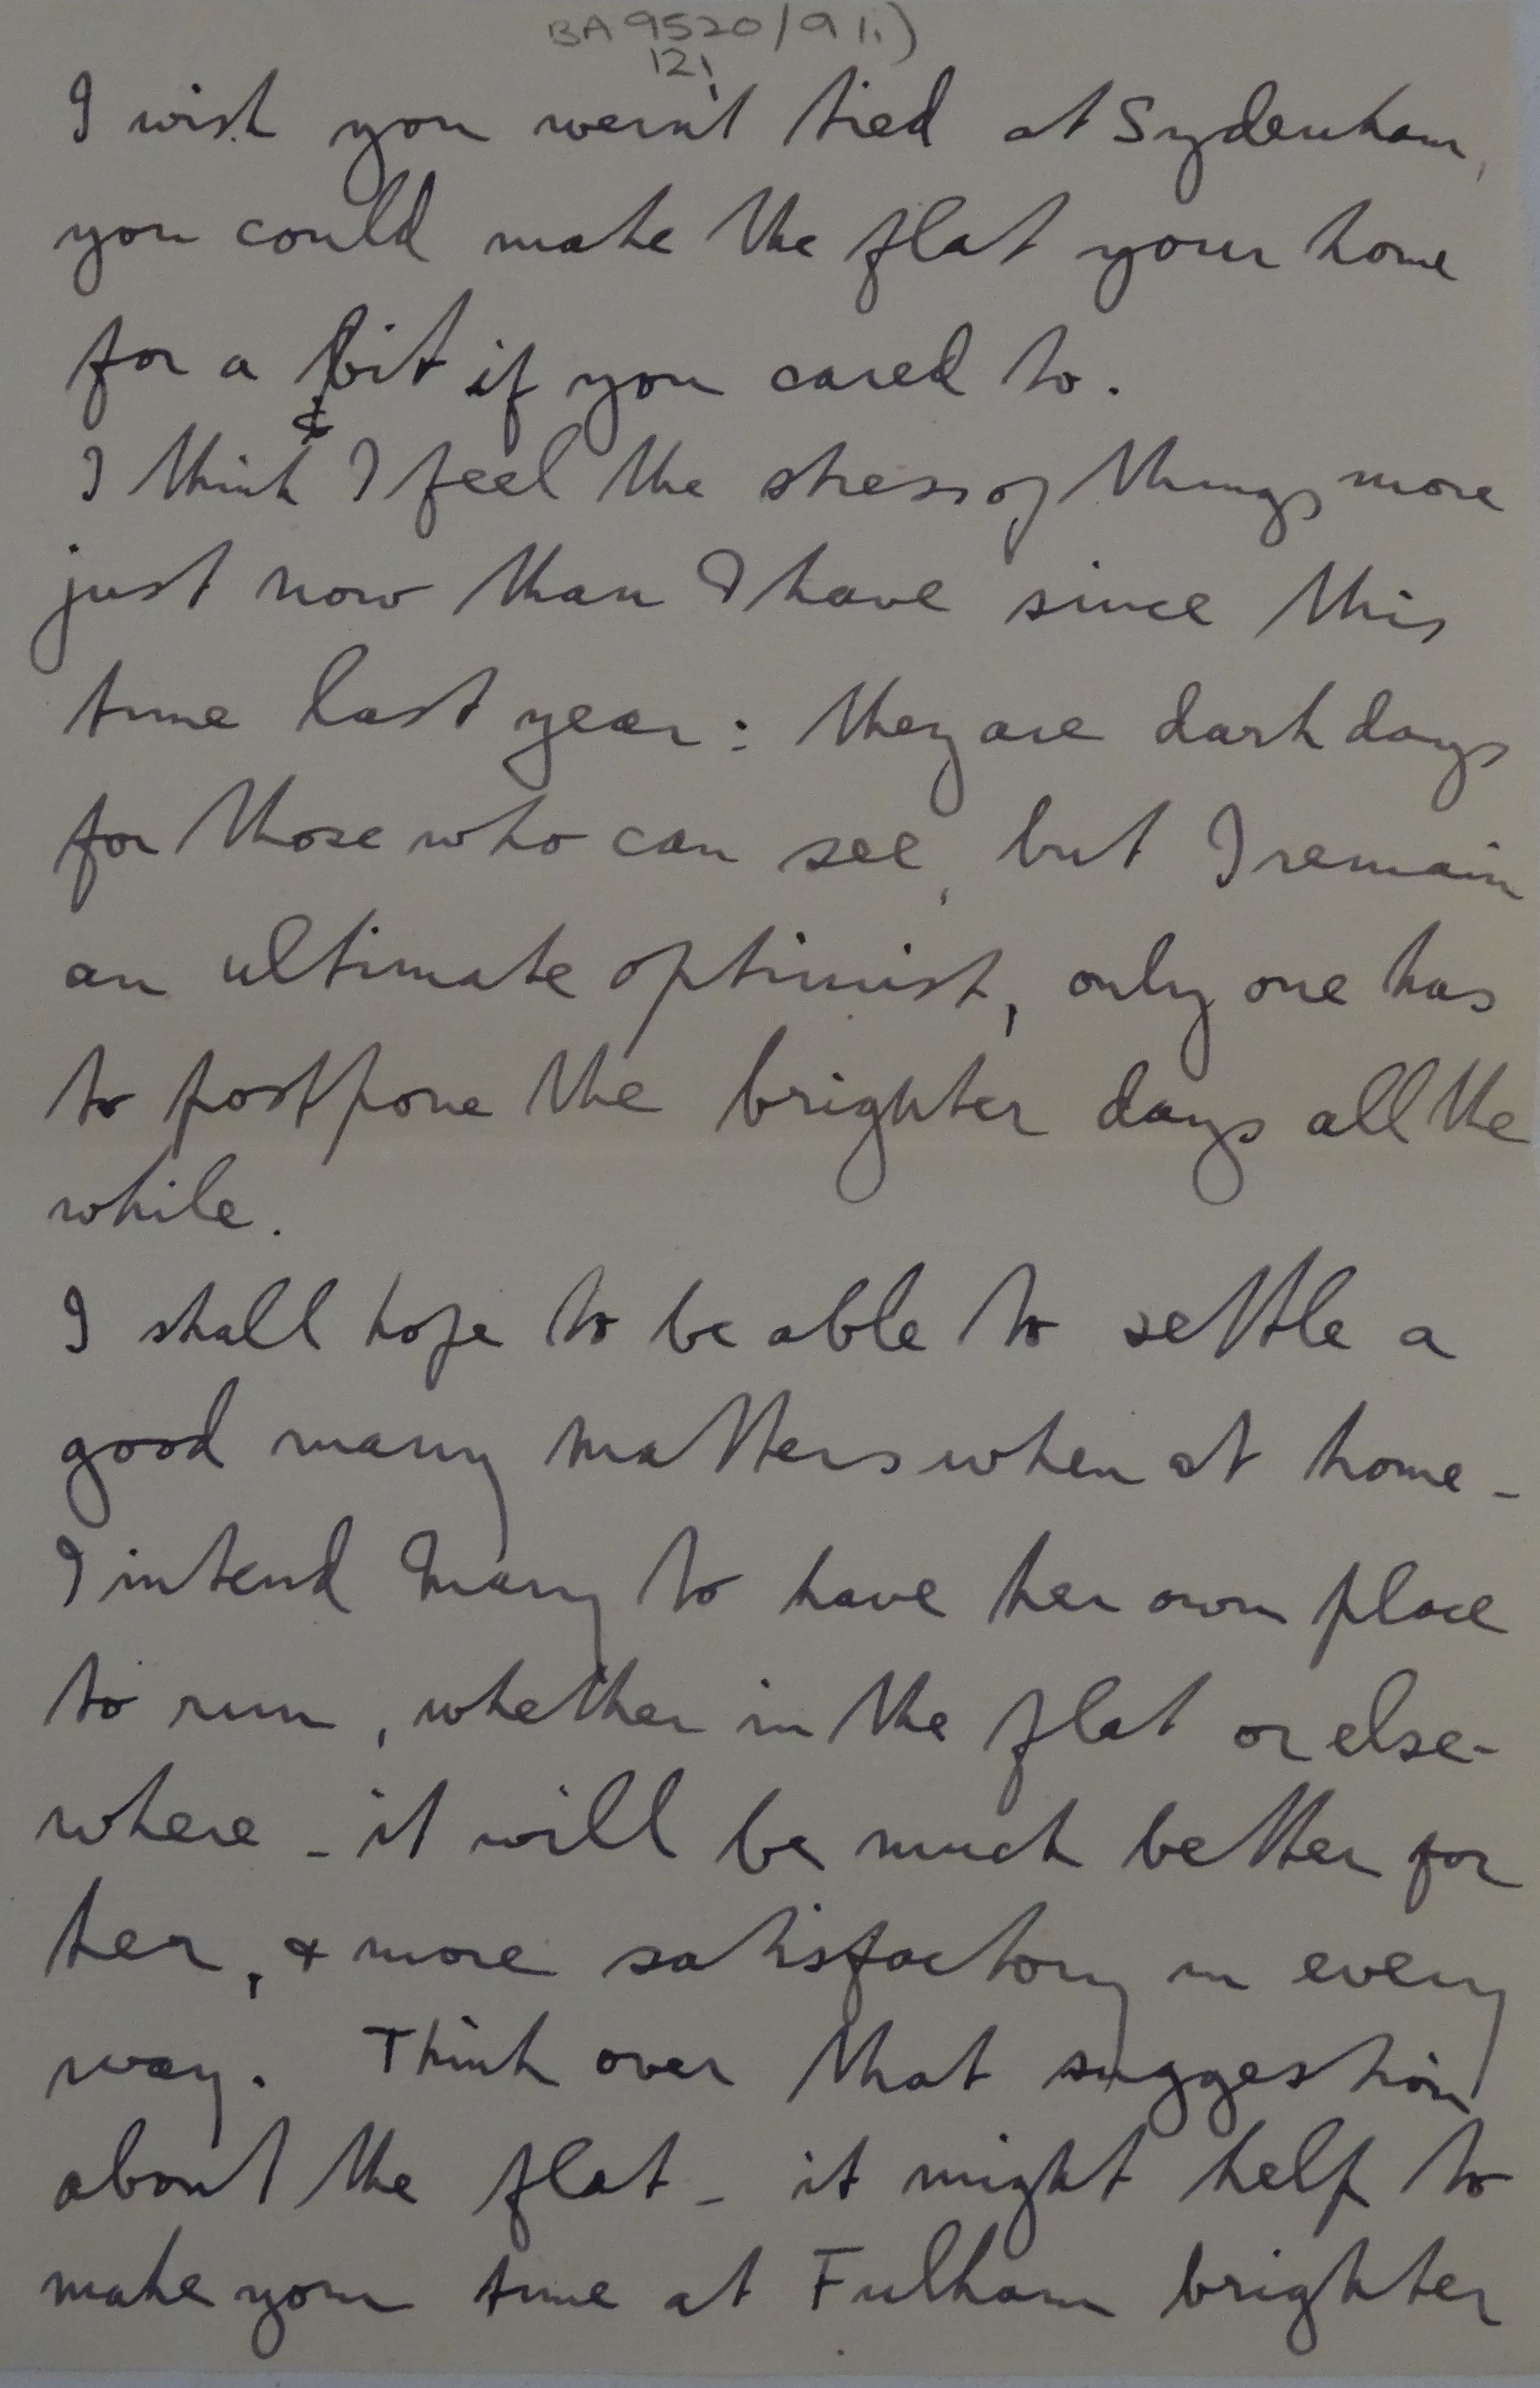 BA 9520/9 1i)
12i
I wish you weren't tied at Sydenham,
you could make the flat your home
for a bit if you cared to.
&
I think I feel the stress of things more
just now than I have since this
time last year: they are dark days
for those who can see, but I remain
an ultimate optimist, only one has
to postpone the brighter days all the
while.
I shall hope to be able to settle a
good many matters when at home -
I intend Mary to have her own place
to run, whether in the flat or else-
where - it will be much better for
her, & more satisfactory in every
way. Think over that suggestion
about the flat - it might help to
make your time at Fulham brighter